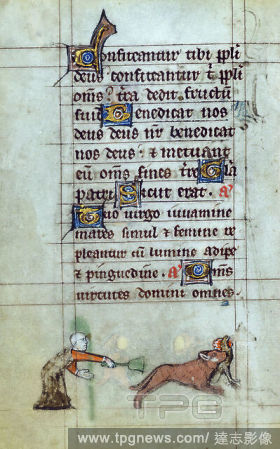 Confiteantur tibi ppli
deus confiteantur t̄ ppli
om̄s? tr̄a dedit fructū
suū Benedicat nos
deus deus nr̄ benedicat
nos deus: & metuant
eū om̄s fines tr̄e Gl̄a
patri Sicut erat. a
Quo virgo iuvamine
mares simul & femine re
pleantur cū lumine adipe
& pinguedine. a Om̄s
virtutes domini omnes.
TPG
www.tpgnews.com/ 達志影像